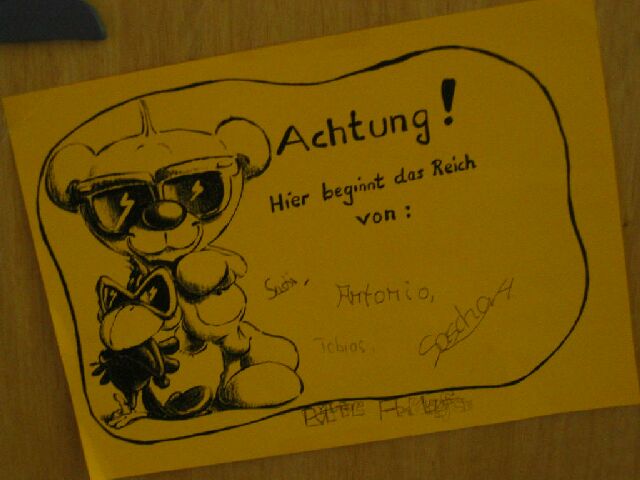 Achtung!
Hier beginnt das Reich
von:
Antonio,
Tobias. Sascha